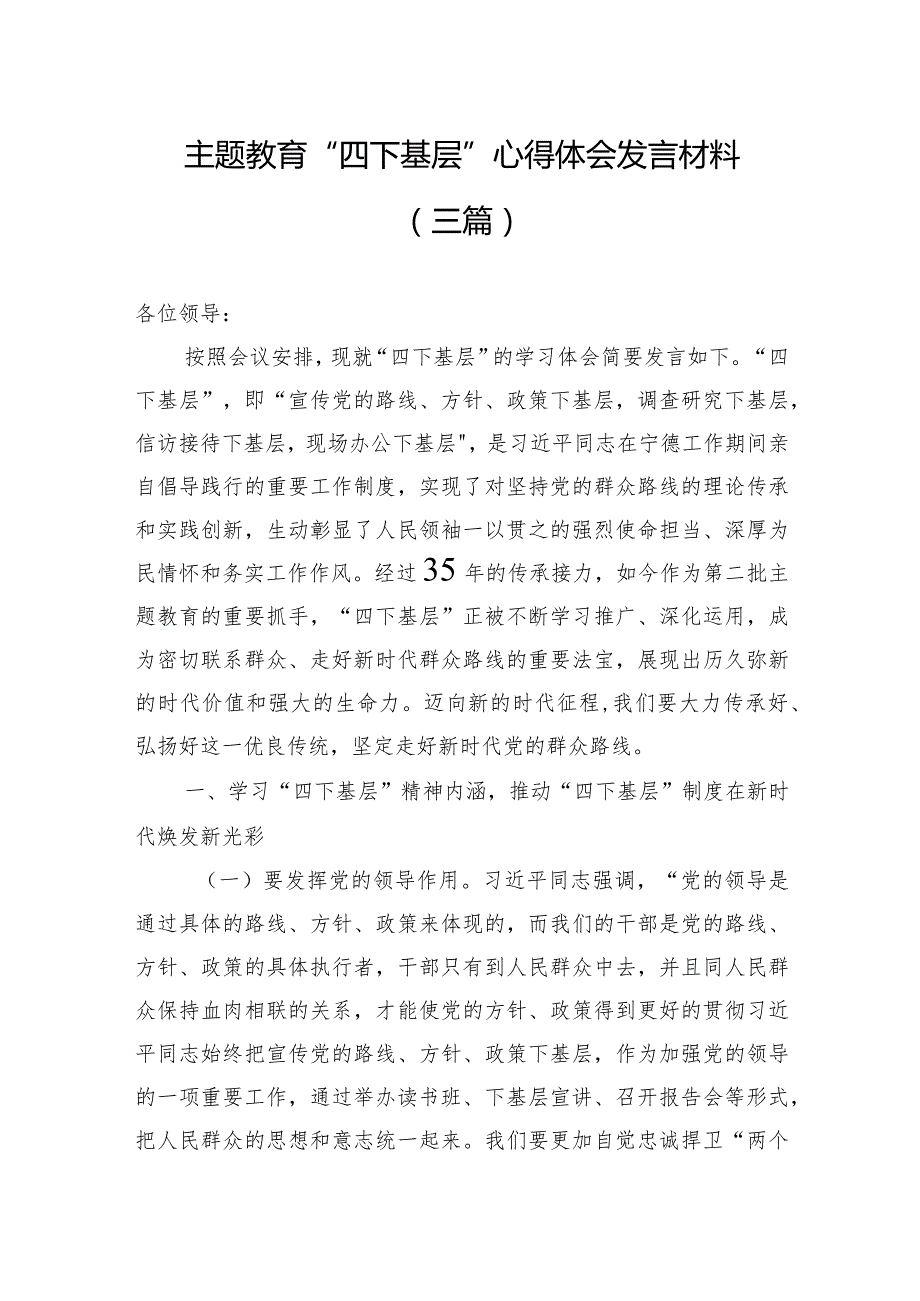 主题教育“四下基层”心得体会发言材料
（三篇）
各位领导：
按照会议安排，现就“四下基层”的学习体会简要发言如下。“四
下基层”，即“宣传党的路线、方针、政策下基层，调查研究下基层，
信访接待下基层，现场办公下基层"，是习近平同志在宁德工作期间亲
自倡导践行的重要工作制度，实现了对坚持党的群众路线的理论传承
和实践创新，生动彰显了人民领袖一以贯之的强烈使命担当、深厚为
民情怀和务实工作作风。经过 35 年的传承接力，如今作为第二批主
题教育的重要抓手，“四下基层”正被不断学习推广、深化运用，成
为密切联系群众、走好新时代群众路线的重要法宝，展现出历久弥新
的时代价值和强大的生命力。迈向新的时代征程,我们要大力传承好、
弘扬好这一优良传统，坚定走好新时代党的群众路线。
一、学习“四下基层”精神内涵，推动“四下基层”制度在新时
代焕发新光彩
（一）要发挥党的领导作用。习近平同志强调，“党的领导是
通过具体的路线、方针、政策来体现的，而我们的干部是党的路线、
方针、政策的具体执行者，干部只有到人民群众中去，并且同人民群
众保持血肉相联的关系，才能使党的方针、政策得到更好的贯彻习近
平同志始终把宣传党的路线、方针、政策下基层，作为加强党的领导
的一项重要工作，通过举办读书班、下基层宣讲、召开报告会等形式，
把人民群众的思想和意志统一起来。我们要更加自觉忠诚捍卫“两个